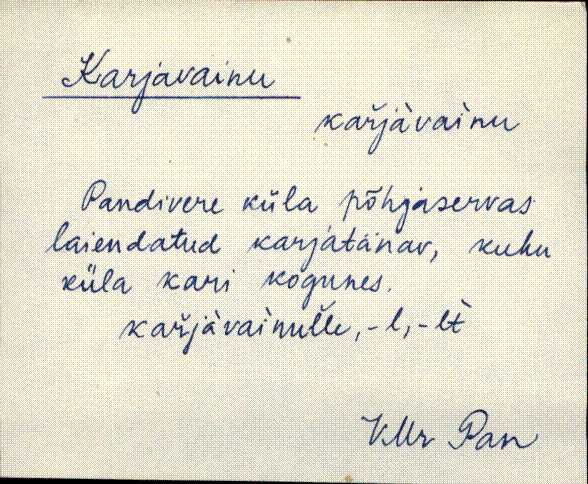 Karjavainu
kaŕjàvaìnu
Pandivere küla põhjaservas
laiendatud karjatänav, kuhu
küla kari kogunes.
kaŕjàvaìnulle, -l, -lt
VMr Pan